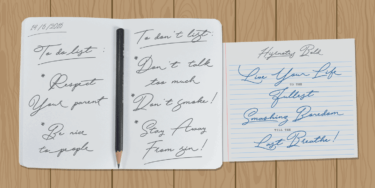 To do list :
* Respect
Your parent
* Be nice
to people
To don't list:
* Don't talk
too much
* Don't Smoke!
* Stay Away
From sin!
Hypnotis Bold
Live Your Life
to the
Fullest
Smashing Boredom
till the
Last Breathe!